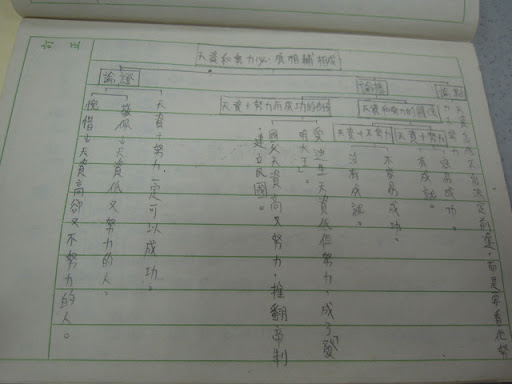 天資和努力必須相輔相成
論點
天資
論據
天資和努力的關係
天資＋努力
容易成功。
有成就。
天資＋不努力
不容易成功。
沒有成就。
天資＋努力而成功的例子
愛迪生天資低但努力，成了發
明大王。
國父天資高又努力，推翻帝制
，建立民國。
論證
天資＋努力一定可以成功。
敬佩：天資低又努力的人。
惋惜：天資高卻又不努力的人。